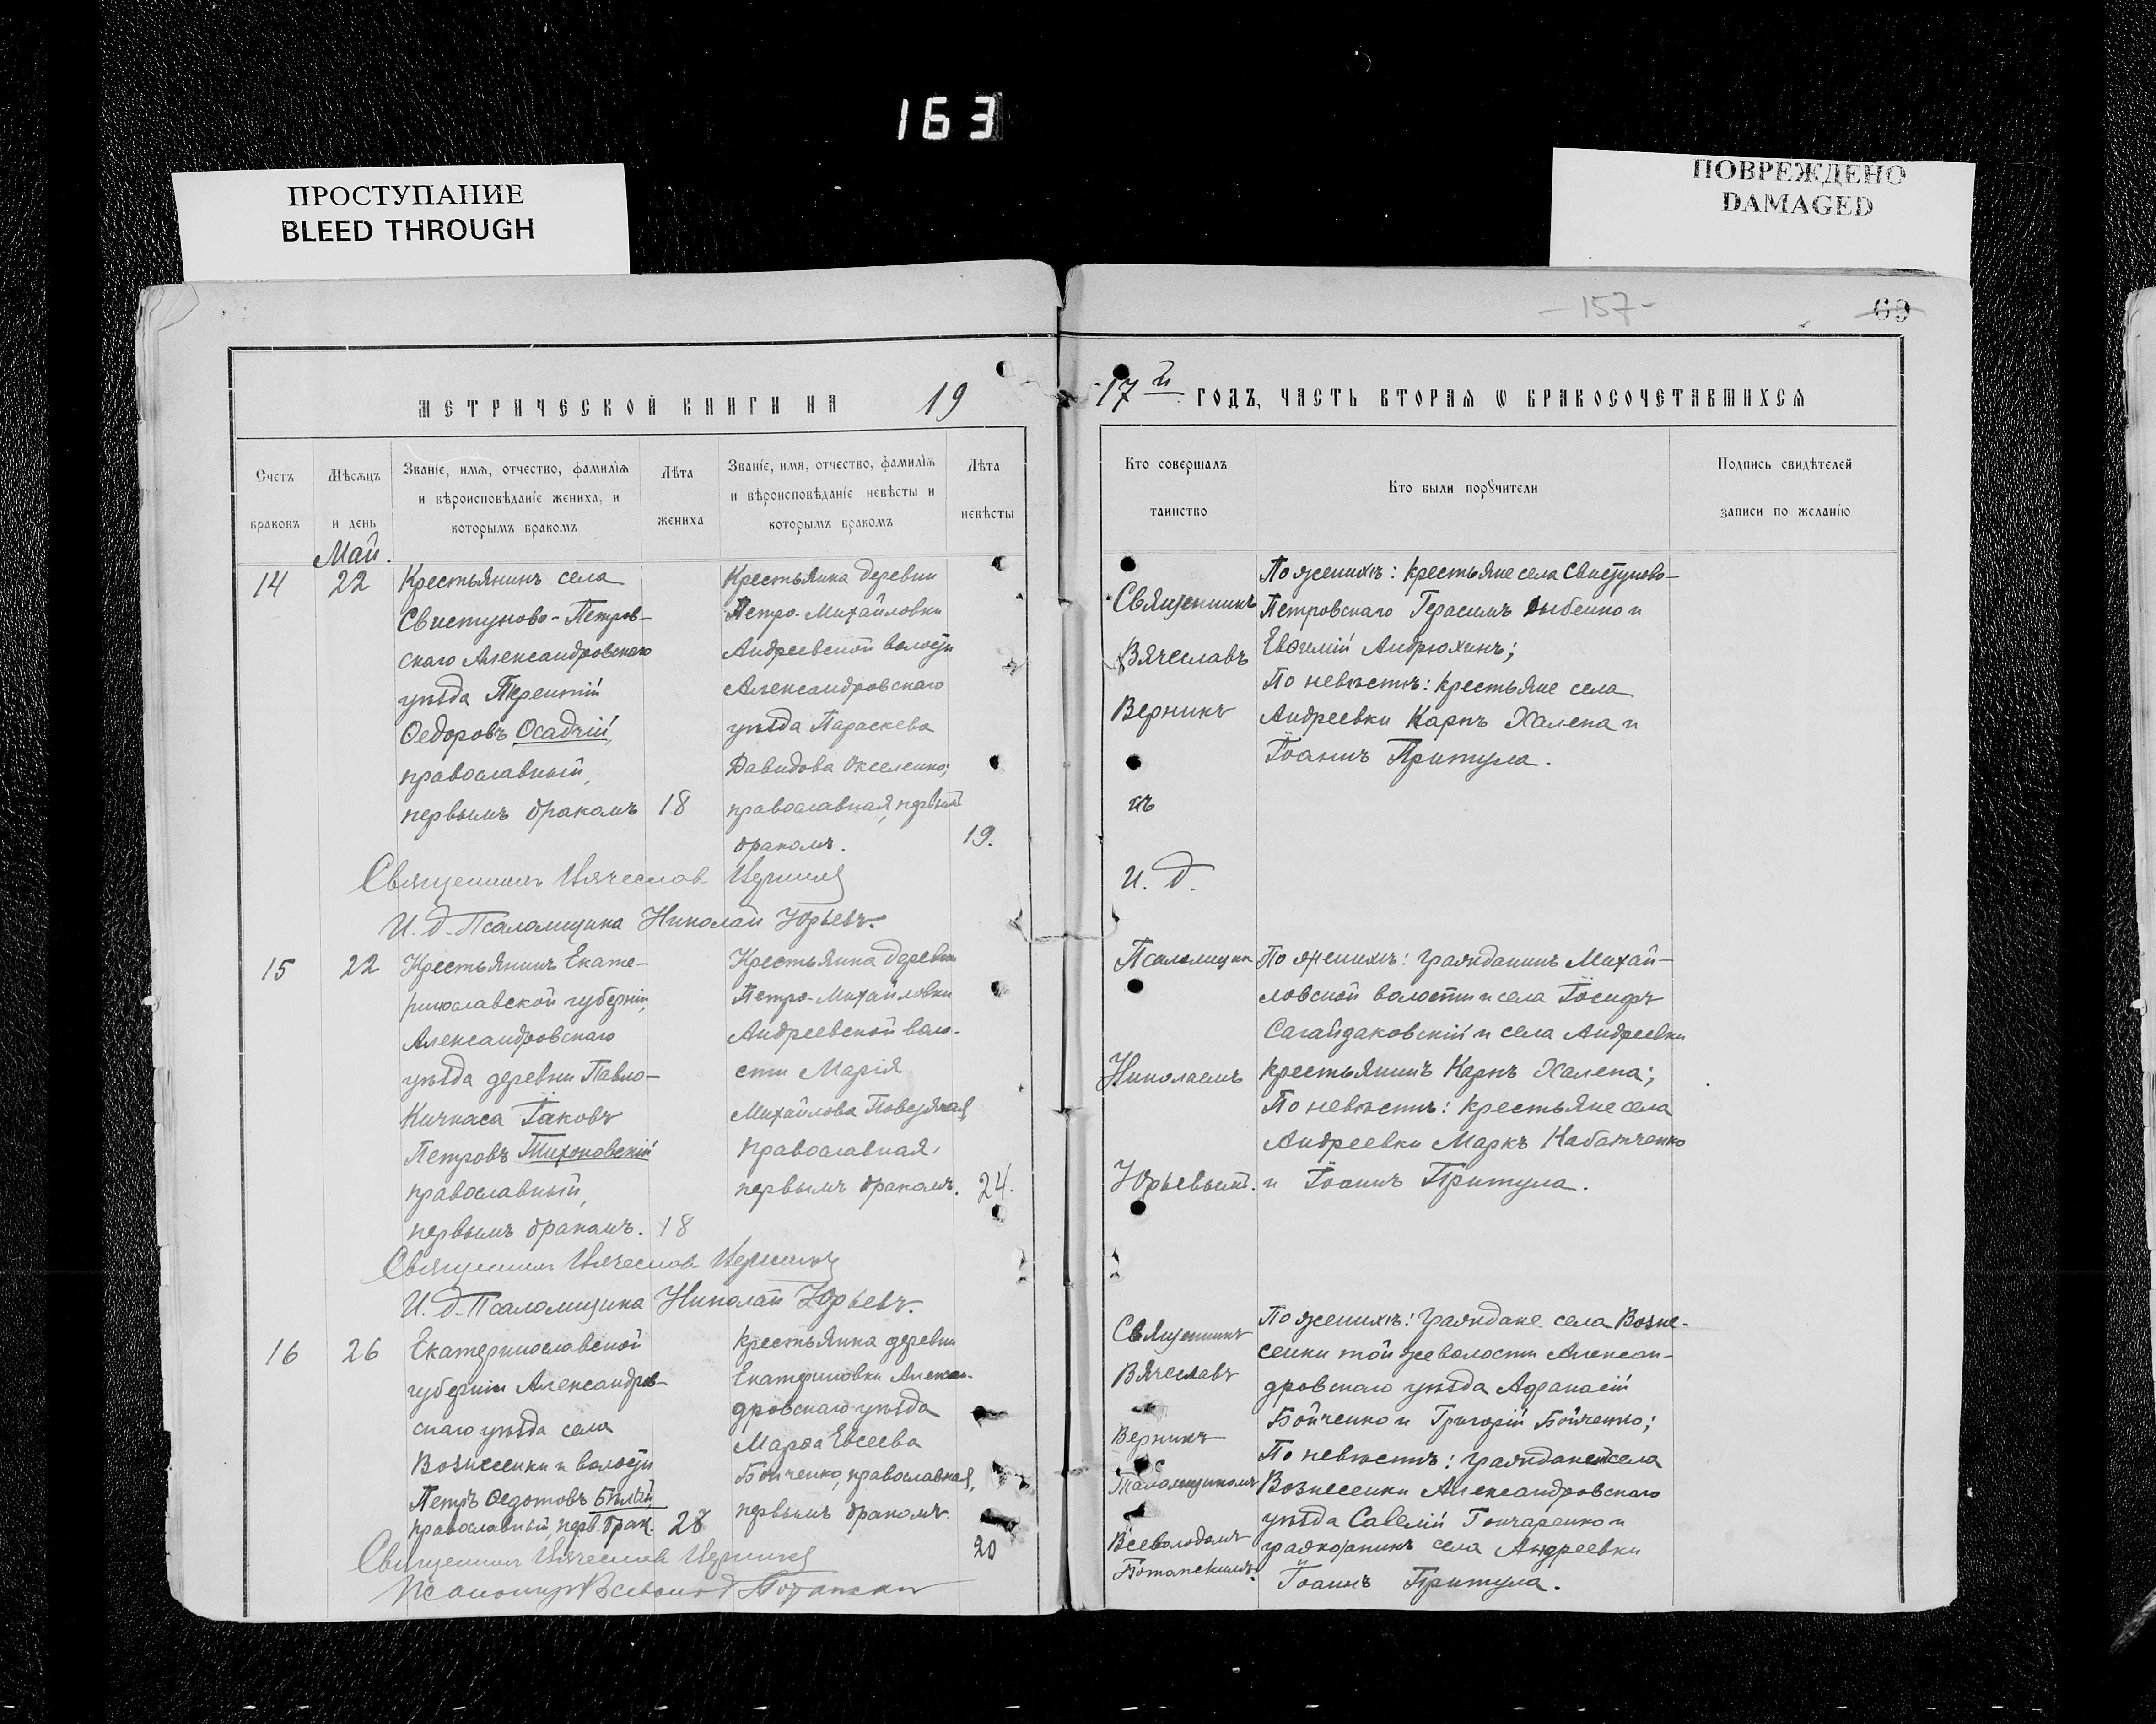 163
ПРОСТУПАНИЕ
BLEED THROUGH
ПОВРЕЖДЕНО
DAMAGED
-157-
69
МЕТРИЧЕСКОЙ КНИГИ НА 19
17й ГОДЪ, ЧАСТЬ ВТОРАЯ Ѡ БРАКОСОЧЕТАВШИХСЯ
Счетъ браковъ
Мѣсяцъ и день
Званіе, имя, отчество, фамилія
и вѣроисповѣданіе жениха, и
которымъ бракомъ
Лѣта жениха
Званіе, имя, отчество, фамилія
и вѣроисповѣданіе невѣсты и
которымъ бракомъ
Лѣта невѣсты
Кто совершалъ таинство
Кто были порꙋчители
Подпись свидѣтелей
записи по желанію
Май.
14
22
Крестьянинъ села
Свистуново-Петров-
скаго Александровскаго
уѣзда Терентій
Ѳедоровъ Осадчій,
православный,
первымъ бракомъ
18
Крестьянка деревни
Петро-Михайловки
Андреевской волости
Александровскаго
уѣзда Параскева
Давидова
православная, первымъ
бракомъ.
19.
Священникъ Вячеслав Верникъ
И. д. Псаломщика Николай Юрьевъ.
15
22
Крестьянинъ Екате-
ринославской губерніи,
Александровскаго
уѣзда деревни Павло-
Кичкаса Іаковъ
Петровъ Тихоновскій
православный,
первымъ бракомъ.
18
Крестьянка деревни
Петро-Михайловки
Андреевской воло-
сти Марія
Михайлова
православная,
первымъ бракомъ.
24.
Священникъ Вячеслав Верникъ
И. д. Псаломщика Николай Юрьевъ.
16
26
Екатеринославской
губерніи Александров-
скаго уѣзда села
Вознесенки и волости
Петръ Ѳедотовъ Бѣлай
православный, перв. брак.
28
Крестьянка деревни
Екатериновки Алексан-
дровскаго уѣзда
Марѳа Евсеева
Бойченко, православная,
первымъ бракомъ
20
Священникъ Вячеслав Верникъ
Священникъ
Вячеславъ
Верникъ
съ
И. д.
Псаломщика
Николаемъ
Юрьевымъ.
По женихѣ: крестьяне села Свистуново-
Петровскаго Герасимъ Дыбенко и
Евѳимій Андрюхинъ;
По невѣстѣ: крестьяне села
Андреевки Карпъ Халепа и
Іоаннъ Притула.
По женихѣ: гражданинъ Михай-
ловской волости и села Іосифъ
Сагайдаковскій и села Андреевки
крестьянинъ Карпъ Халепа;
По невѣстѣ: крестьяне села
Андреевки Маркъ
и Іоаннъ Притула.
Священникъ
Вячеславъ
Верникъ
съ
Псаломщикомъ
Всеволодомъ
По женихѣ: граждане села Возне-
сенки той же волости Алексан-
дровскаго уѣзда Афанасій
Бойченко и Григорій Бойченко;
По невѣстѣ: села
Вознесенки Александровскаго
уѣзда Савелій Гончаренко и
села Андреевки
Іоаннъ Притула.